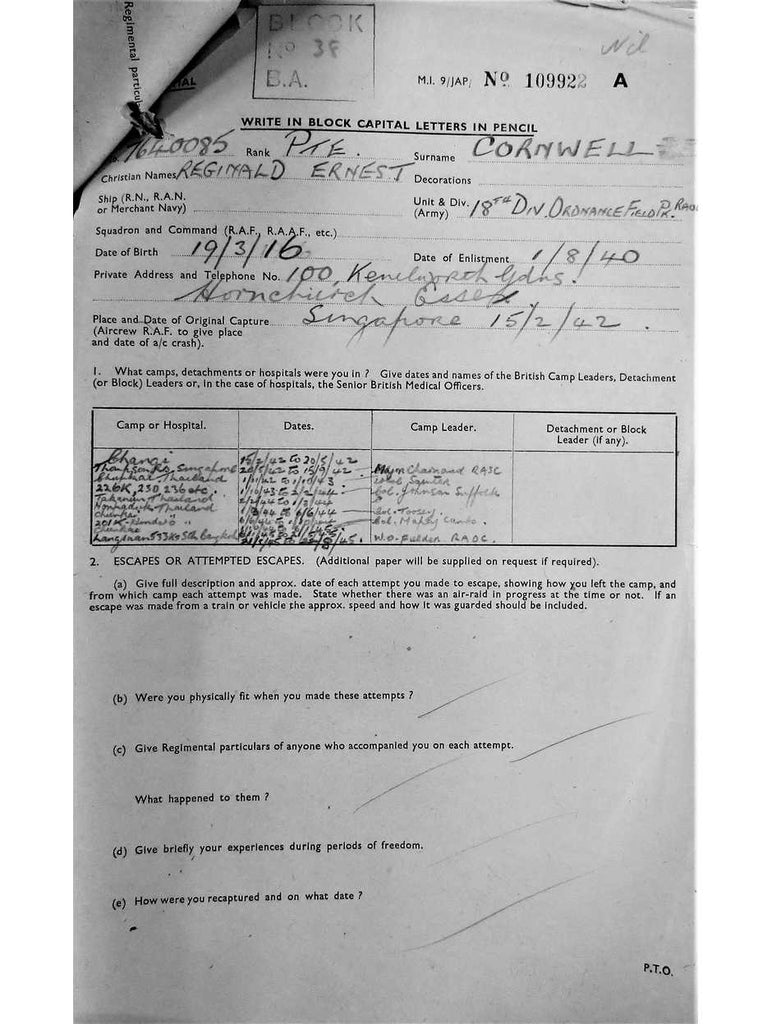 Regimental particul
BLOCK
No 38
B.A.
Nil
M.I. 9/JAP/ No 109922 A
WRITE IN BLOCK CAPITAL LETTERS IN PENCIL
7640085 Rank PTE. Surname CORNWELL
Christian Names REGINALD ERNEST Decorations
Ship (R.N., R.A.N. or Merchant Navy)
Unit & Div. (Army) 18TH DIV. ORDNANCE FIELD PK. RAOC
Squadron and Command (R.A.F., R.A.A.F., etc.)
Date of Birth 19/3/16 Date of Enlistment 1/8/40
Private Address and Telephone No. 100, Kenilworth Gdns.
Hornchurch Essex
Place and Date of Original Capture Singapore 15/2/42.
(Aircrew R.A.F. to give place
and date of a/c crash).
1. What camps, detachments or hospitals were you in ? Give dates and names of the British Camp Leaders, Detachment
(or Block) Leaders or, in the case of hospitals, the Senior British Medical Officers.
Camp or Hospital. Dates. Camp Leader. Detachment or Block
Leader (if any).
Changi 15/2/42 to 20/5/42
Singapore 20/5/42 to 15/9/42 Major RASC
Thailand 1/11/42 to
226K, 230, 236 etc. Col. Johnson Suffolk
Takanun Thailand
Thailand Col. Toosey
Chunkai
W.O. RAOC.
2. ESCAPES OR ATTEMPTED ESCAPES. (Additional paper will be supplied on request if required).
(a) Give full description and approx. date of each attempt you made to escape, showing how you left the camp, and
from which camp each attempt was made. State whether there was an air-raid in progress at the time or not. If an
escape was made from a train or vehicle the approx. speed and how it was guarded should be included.
(b) Were you physically fit when you made these attempts ?
(c) Give Regimental particulars of anyone who accompanied you on each attempt.
What happened to them ?
(d) Give briefly your experiences during periods of freedom.
(e) How were you recaptured and on what date ?
P.T.O.